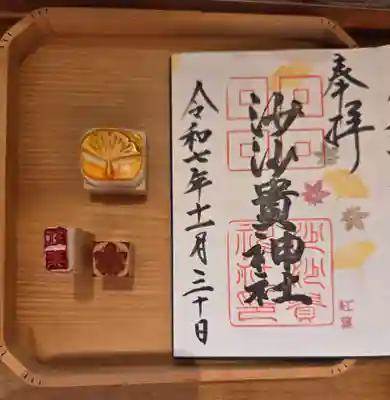 奉拝
沙沙貴神社
沙沙貴
神社印
令和七年十一月三十日
紅葉